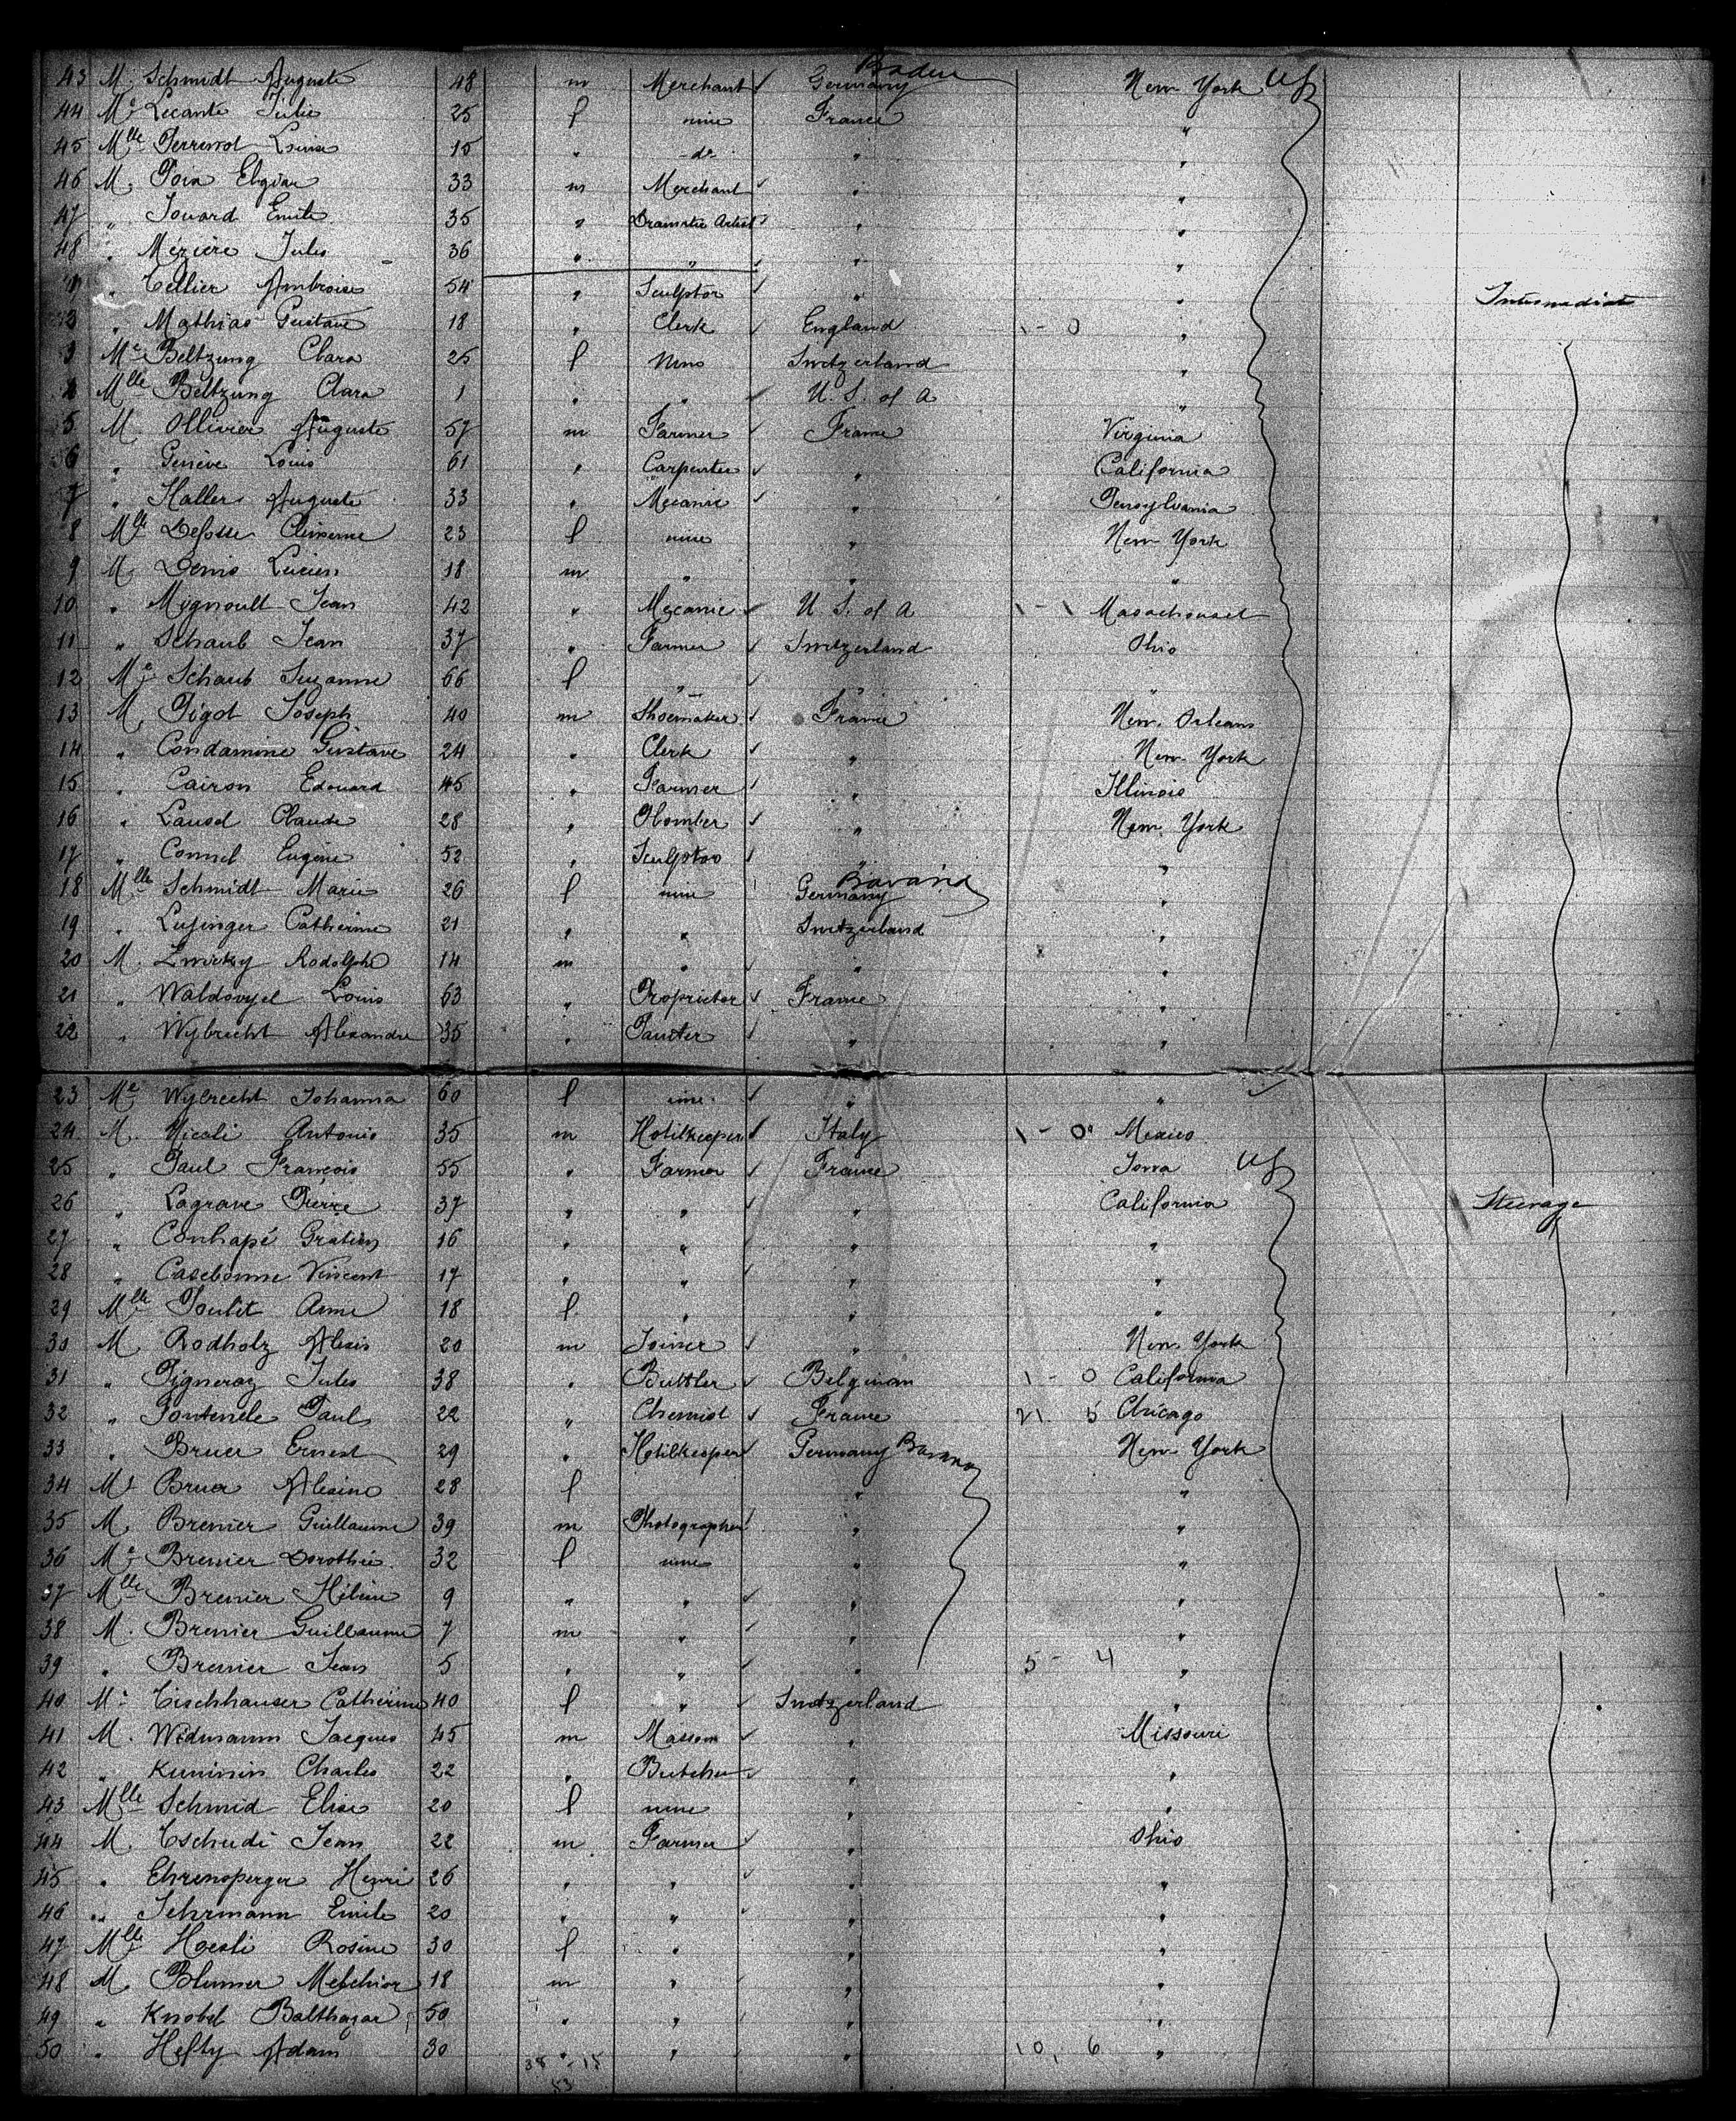 43 M. Schmidt Auguste 48 m Merchant Germany Baden New York US
44 Me Lecante Julie 25 f none France "
45 Mlle Perrenot Louise 15 " do " "
46 M. Poia 33 m Merchant " "
47 " Jouard Emile 35 " Dramatic Artist " "
48 " Mézière Jules 36 " " " "
1 " Tellier Ambroise 54 " Sculptor " " Intermediate
2 " Mathias Gustave 18 " Clerk England 1 - 0 "
3 Me Beltzung Clara 25 f None Switzerland "
4 Mlle Beltzung Clara 1 " " U. S. of A "
5 M. Ollivier Auguste 57 m Farmer France Virginia
6 " Genève Louis 61 " Carpenter " California
7 " Haller Auguste 33 " Mecanic " Pensylvania
8 Mlle 23 f none " New York
9 M. Denis Lucien 18 m " " "
10 " Mignoult Jean 42 " Mecanic U. S. of A 1 - 1 Massachouset
11 " Schaub Jean 37 " Farmer Switzerland Ohio
12 Me Schaub Suzanne 66 f " " "
13 M. Pigot Joseph 40 m Shoemaker France New Orleans
14 " Condamine Gustave 24 " Clerk " New York
15 " Cairon Edouard 45 " Farmer " Illinois
16 " Claude 28 " Plomber " New York
17 " Eugène 52 " Sculptor " "
18 Mlle Schmidt Marie 26 f none Germany Bavaria "
19 " Lusinger Catherine 21 " " Switzerland "
20 M. Zwicky Rodolphe 14 m " " "
21 " Louis 63 " Proprietor France "
22 " Wybrecht Alexandre 35 " Painter " "
23 Me Wybrecht Johanna 60 f none " "
24 M. Nicoli Antonio 35 m Hotilkeeper Italy 1 - 0 Mexico
25 " Paul François 55 " Farmer France Iowa US
26 " Lagrave Pierre 37 " " " California Steerage
27 " Conhapé Gratien 16 " " " "
28 " Casebonne Vincent 17 " " " "
29 Mlle Poulit Anna 18 f " " "
30 M. Rodholz Alexis 20 m Joiner " New York
31 " Pigneroz Jules 38 " Buttler Belgium 1 - 0 California
32 " Paul 22 " Chemist France 21 5 Chicago
33 " Bruer Ernest 29 " Hotilkeeper Germany Bavaria New York
34 Me Bruer 28 f " "
35 M. Brenier Guillaume 39 m Photographer " "
36 Me Brenier Dorothée 32 f none " "
37 Mlle Brenier Hélène 9 " " " "
38 M. Brenier Guillaume 7 m " " "
39 " Brenier Jean 5 " " " 5 - 4 "
40 Me Tischhauser Catherine 40 f " Switzerland "
41 M. Widmann Jacques 45 m Masson " Missouri
42 " Kuminin Charles 22 " Butcher " "
43 Mlle Schmid Elise 20 f none " "
44 M. Tschudi Jean 22 m Farmer " Ohio
45 " Ehrensperger Henri 26 " " " "
46 " Jehrmann Emile 20 " " " "
47 Mlle Hoesli Rosine 30 f " " "
48 M. Blumer Melchior 18 m " " "
49 " Knobel Balthazar 50 " " " "
50 " Hefty Adam 30 " " " 10, 6 "
38 - 15
53